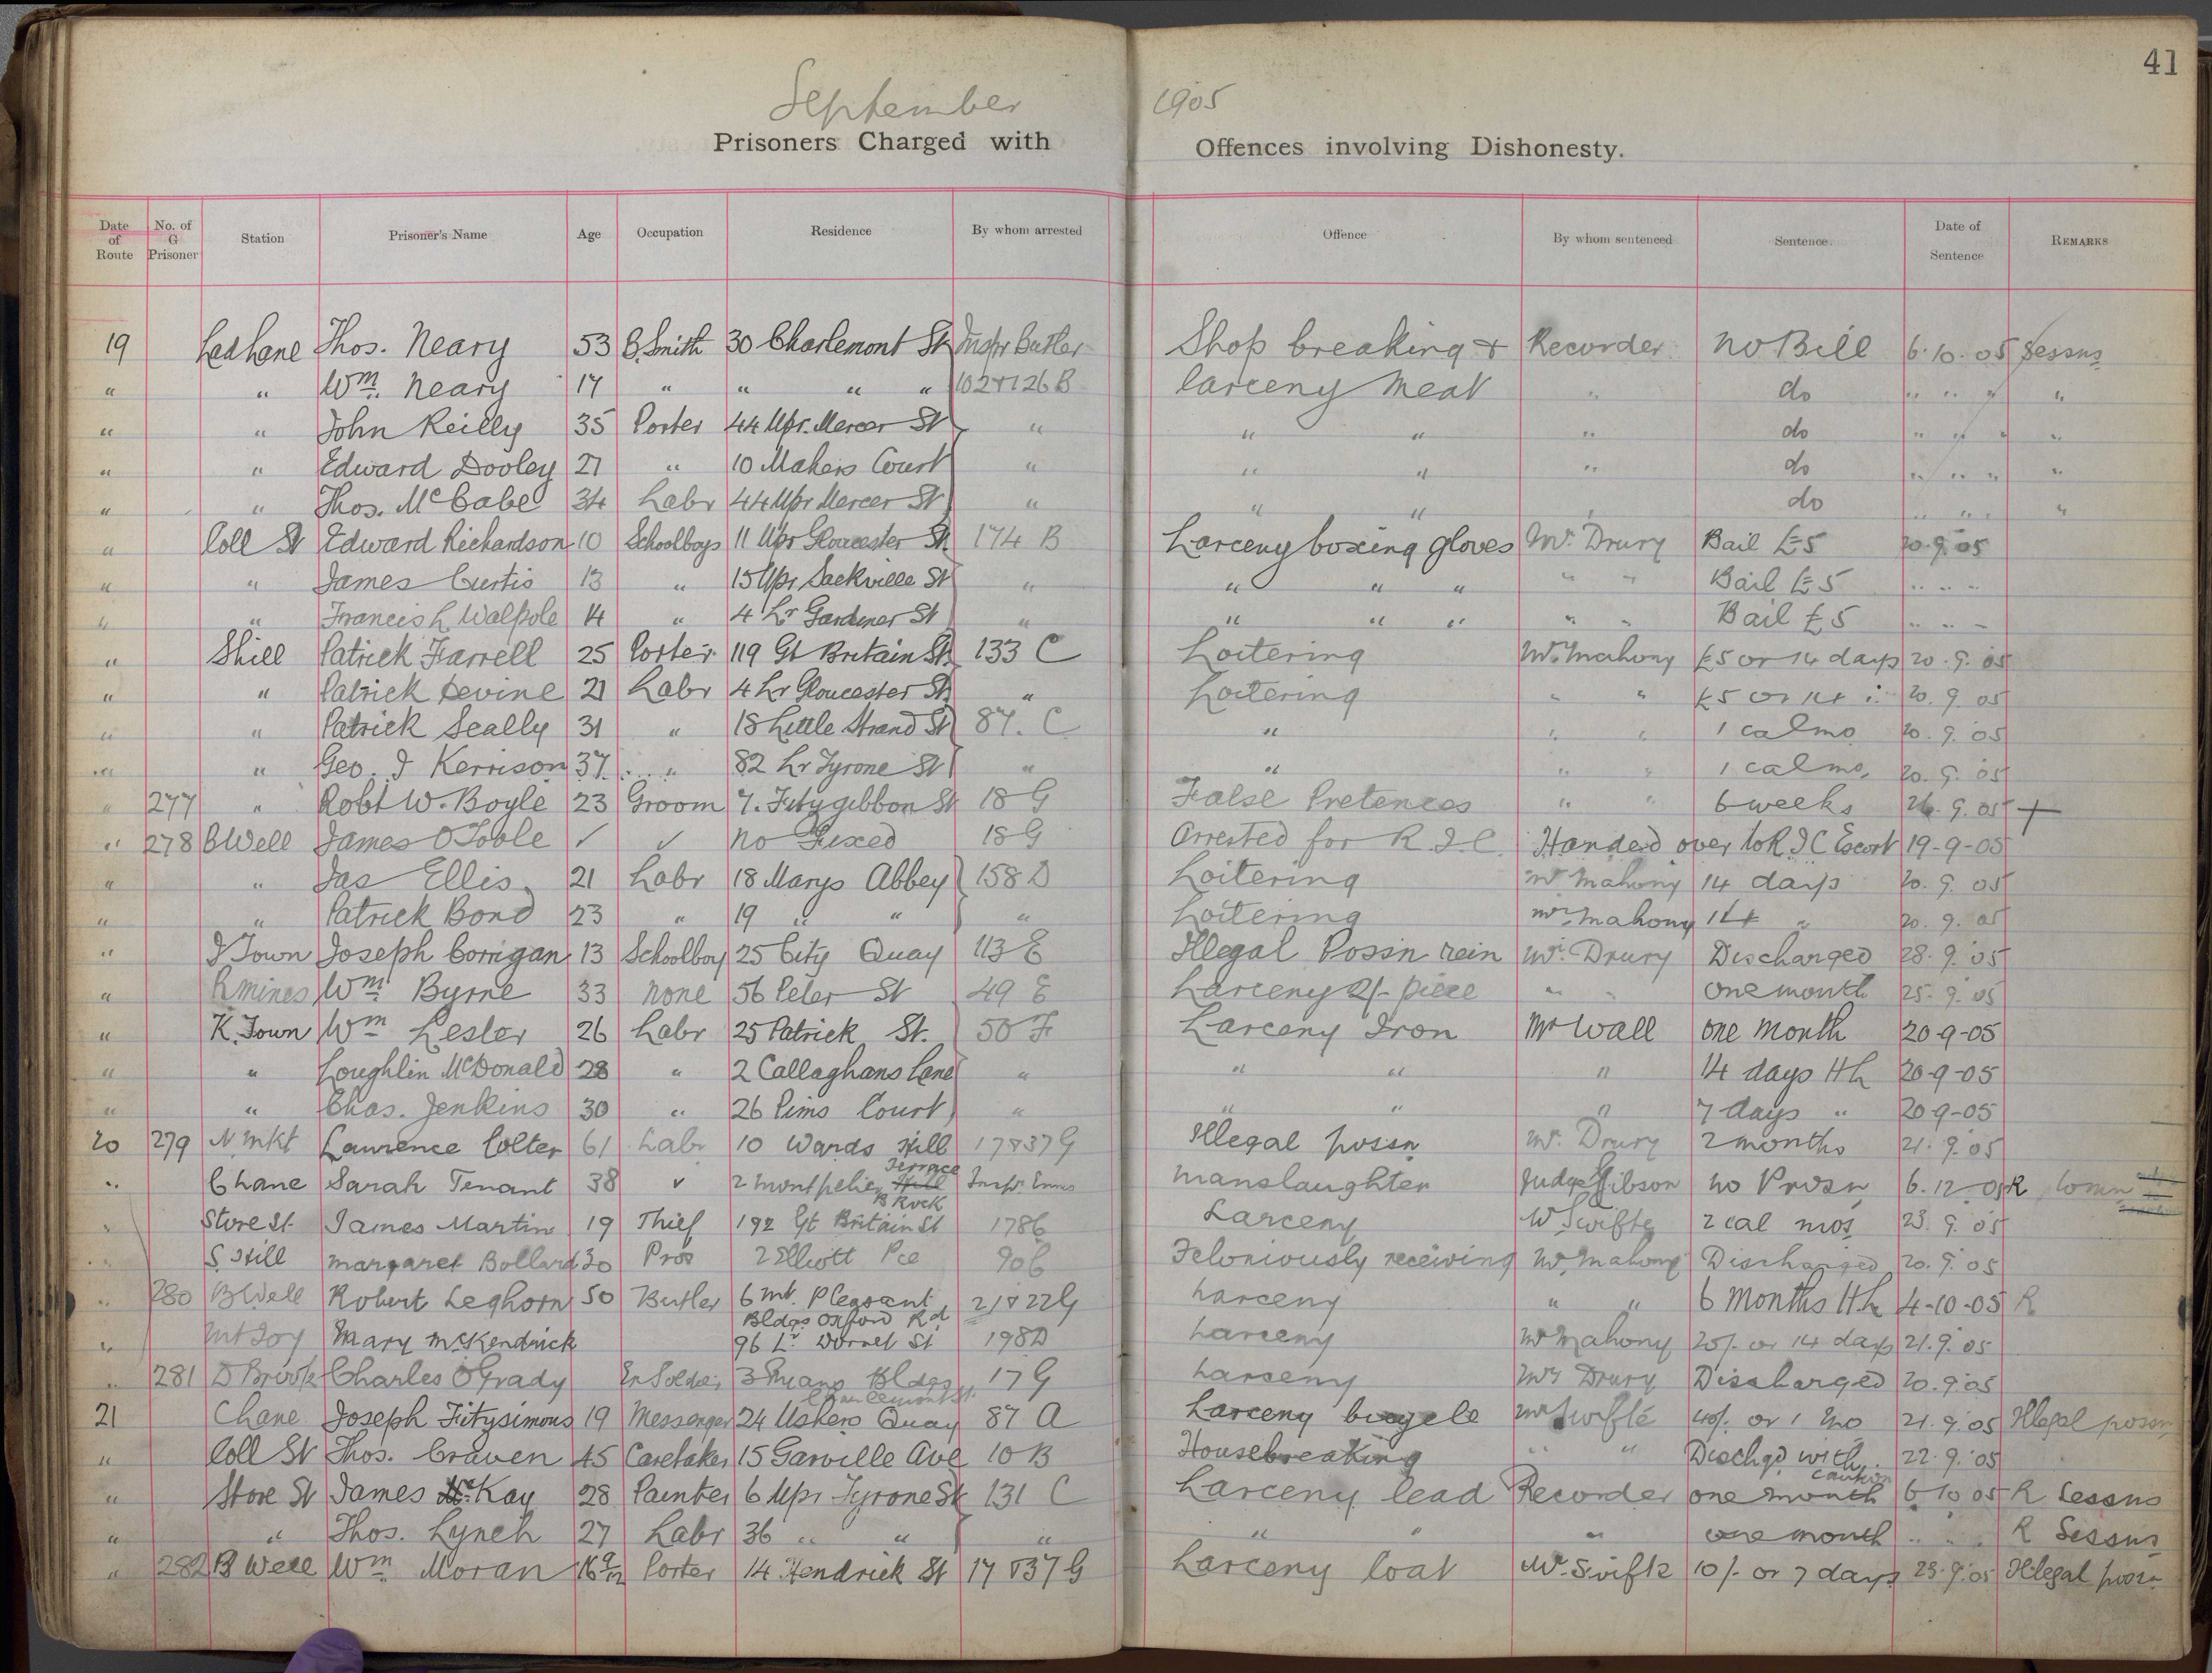 41
September 1905
Prisoners Charged with Offences involving Dishonesty.
Date of Route No. of G Prisoner Station Prisoner's Name Age Occupation Residence By whom arrested Offence By whom sentenced Sentence Date of Sentence REMARKS
19 Lad Lane Thos. Neary 53 B. Smith 30 Charlemont St Inspr Butler Shop breaking & Recorder No Bill 6.10.05 Sessns
" " Wm. Neary 17 " " " " 102 & 126 B larceny meat " do " " " "
" " John Reilly 35 Porter 44 Upr. Mercer St " " " " do " " " "
" " Edward Dooley 21 " 10 Mahers Court " " " " do " " " "
" " Thos. McCabe 34 Labr 44 Upr Mercer St " " " " do " " " "
" Coll St Edward Richardson 10 Schoolboys 11 Upr Gloucester St. 174 B Larceny boxing gloves Mr. Drury Bail £5 20.9.05
" " James Curtis 13 " 15 Upr. Sackville St " " " " " " Bail £5 " " "
" " Francis L Walpole 14 " 4 Lr Gardiner St " " " " " " Bail £5 " " "
" S hill Patrick Farrell 25 Porter 119 Gt Britain St. 133 C Loitering Mr. Mahony £5 or 14 days 20.9.05
" " Patrick Devine 21 Labr 4 Lr Gloucester St. " Loitering " " £5 or 14 " 20.9.05
" " Patrick Scally 31 " 18 Little Strand St 87. C " " " 1 cal mo 20.9.05
" " Geo. J Kerrison 37 " 82 Lr Tyrone St " " " " 1 cal mo. 20.9.05
" 277 " Robt W. Boyle 23 Groom 7. Fitzgibbon St 18 G False Pretences " " 6 weeks 26.9.05 +
" 278 B Well James O'Toole ✓ ✓ No Fixed 18 G Arrested for R.I.C. Handed over to R I C Escort 19-9-05
" " Jas Ellis 21 Labr 18 Marys Abbey 158 D Loitering Mr Mahony 14 days 20.9.05
" " Patrick Bond 23 " 19 " " " Loitering Mr. Mahony 14 " 20.9.05
" I Town Joseph Corrigan 13 Schoolboy 25 City Quay 113 E Illegal Possn rein Mr. Drury Discharged 28.9.05
" Rmines Wm. Byrne 33 none 56 Peter St 49 E Larceny 2/- piece " " one month 25.9.05
" K. Town Wm Lester 26 Labr 25 Patrick St. 50 F Larceny Iron Mr Wall one month 20-9-05
" " Loughlin McDonald 28 " 2 Callaghans Lane " " " " 14 days H L 20-9-05
" " Chas. Jenkins 30 " 26 Pims Court " " " " 7 days " 20-9-05
20 279 N Mkt Laurence Colter 61 Labr 10 Wards Hill 17 & 37 G Illegal possn Mr. Drury 2 months 21.9.05
" C Lane Sarah Tenant 38 ✓ 2 Montpelier Hill Terrace B Rock Inspr. Judge Gibson Manslaughter no Prosn 6.12.05 R
" Store St. James Martin 19 Thief 192 Gt Britain St 178 C Larceny Mr Swifte 2 cal mos 23.9.05
" S. Hill Margaret Bollard 30 Pros 2 Elliott Pce 90 C Feloniously receiving Mr. Mahony Discharged 20.9.05
" 280 B Well Robert Leghorn 50 Butler 6 Mt. Pleasant Bldgs Oxford Rd 21 & 22 G Larceny " " 6 Months H L 4-10-05 R
" Mt Joy Mary McKendrick 96 Lr Dorset St 198 D Larceny Mr Mahony 20/- or 14 days 21.9.05
" 281 D Brook Charles O'Grady Ex Soldier 3 Bldgs Charlemont St. 17 G Larceny Mr Drury Discharged 20.9.05
21 C Lane Joseph Fitzsimons 19 Messenger 24 Ushers Quay 87 A Larceny bicycle Mr Swifte 40/- or 1 mo 21.9.05 Illegal possn
" Coll St Thos. Craven 45 Caretaker 15 Garville Ave 10 B Housebreaking " " Dischgd with caution 22.9.05
" Store St James McKay 28 Painter 6 Upr Tyrone St 131 C Larceny lead Recorder one month 6.10.05 R Sessns
" " Thos. Lynch 27 Labr 36 " " " " " " one month " " " R Sessns
" 282 B Well Wm. Moran 16 9/12 Porter 14 Hendrick St 17 & 37 G Larceny Coat Mr. Swifte 10/- or 7 days 23.9.05 Illegal possn